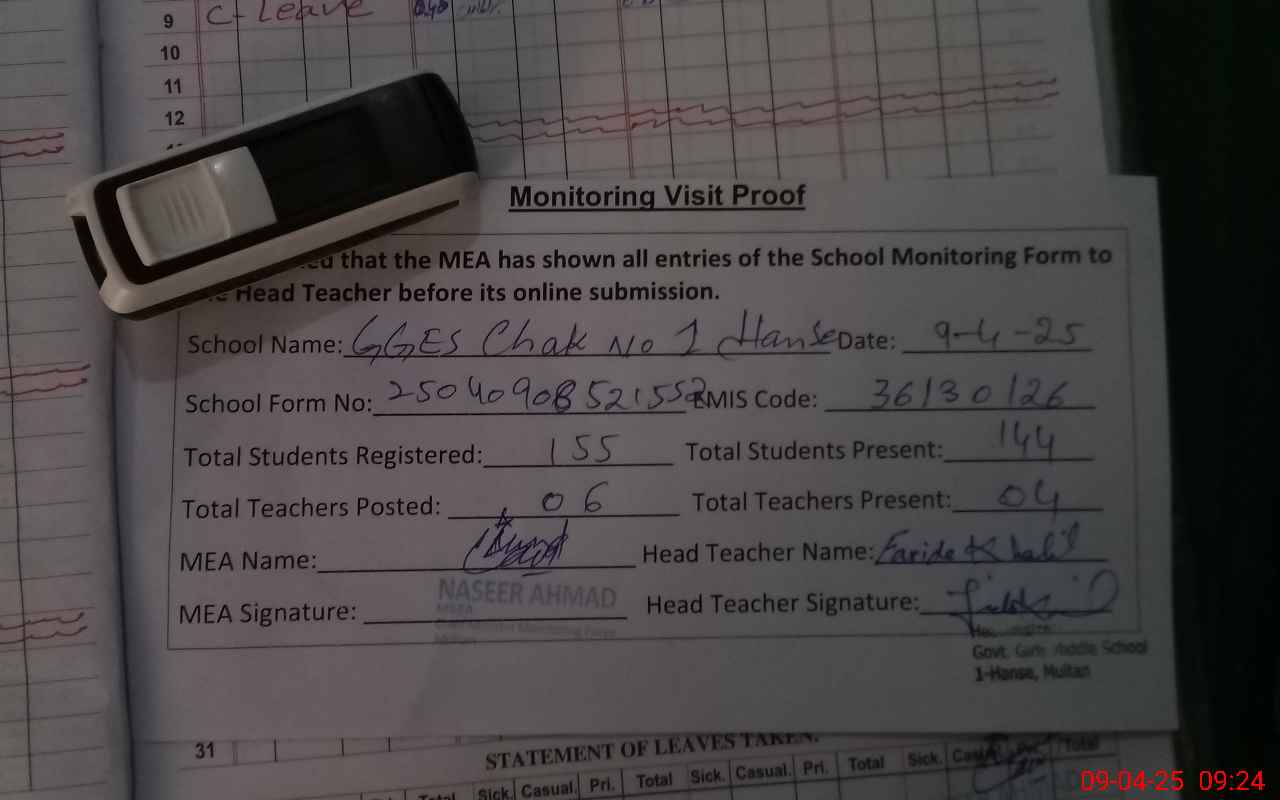 9 C-Leave
10
11
12
Monitoring Visit Proof
that the MEA has shown all entries of the School Monitoring Form to
Head Teacher before its online submission.
School Name: GGES Chak No 1 Hanse Date: 9-4-25
School Form No: 25040908521552 EMIS Code: 36130126
Total Students Registered: 155 Total Students Present: 144
Total Teachers Posted: 06 Total Teachers Present: 04
MEA Name: Head Teacher Name: Farida Khalil
NASEER AHMAD
MEA Signature: Head Teacher Signature:
Govt. Girls Middle School
1-Hanse, Multan
31
STATEMENT OF LEAVES TAKEN.
Total Sick. Casual. Pri. Total Sick. Casual. Pri. Total Sick. Casual. Pri. Total
09-04-25 09:24